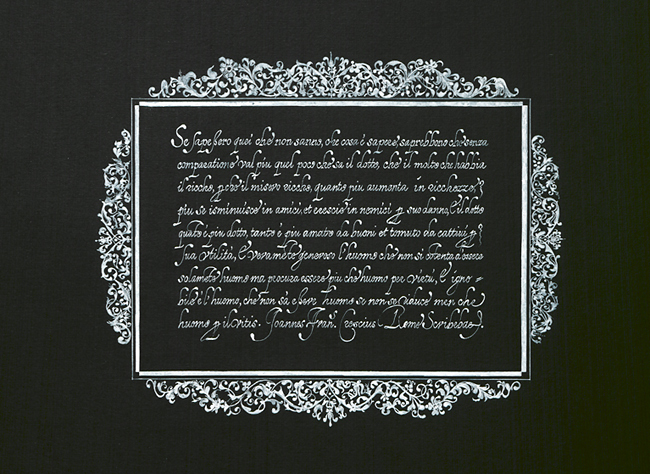 Se sapeßero quei che non sanno, che cosa è sapere, saprebbono che senza
comparatione val piu quel poco che sa il dotto, che il molto che habbia
il riccho, il misero riccho, quanto piu aumenta in ricchezze,
piu se isminuisce in amici, et crescie in nemici suo danno, il dotto
piu dotto, tanto è piu amato da buoni et temuto da cattiui
sua vtilità, generoso l'huomo che non si
huomo ma procura essere piu che huomo per virtù,
bile è l'huomo, che non sà eßere huomo se non
huomo il vitio. Joannes Fran. Crescius Rome Scribebat.